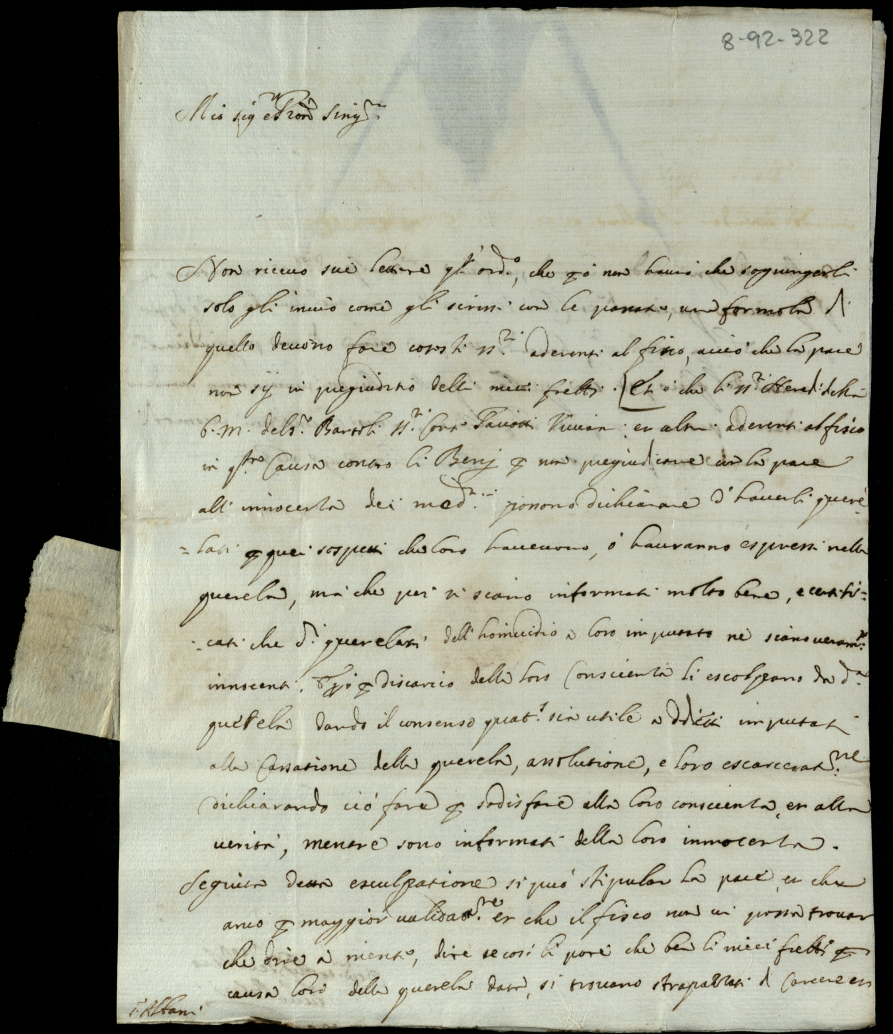 8-92-322
Mio sig.r e Pron sing.mo
Non riceuo sue lettere q.to ord.o, che p ò non hauró che sogiungerli
solo gli inuio come gli scrissi con le passate, una formola di
quello deuono fare cotesti ss.ri aderenti al fisco, acciò che la pace
non sij in pregiuditio delli miei frelli. Et è che li ss.ri Heredi della
b. m. del s.r Bartoli ss.ri Viviani et altri aderenti al fisco
in q.sta Causa contro li Benj p non pregiudicare con la pace
all' innocenza dei med.mi possono dichiarare d' hauerli quere=
=lati p quei sospetti che loro haueuono, ó hauranno espressi nella
querela, má che poi si siano informati molto bene, e certifi=
=cati che d.i querelati dell' homicidio a loro imputato ne siano ueram.te
innocenti. p discarico della loro Conscienza li escolpano da d.a
querela dando il consenso quat.s sia utile a dd.i imputati
alla Cassatione della querela, assolutione, e loro escarcerat.ne
dichiarando ció fare p sodisfare alla loro conscienza, et alla
verità, mentre sono informati della loro innocenza.
Seguita detta esculpatione si puó stipular la pace, et che
anco p maggior ualidat.ne et che il fisco non ui possa trouar
che dire a niente, dire se cosi li pare che ben li miei frelli p
causa loro della querela data, si trouano strapazzati di Carcere et
s.r Albani